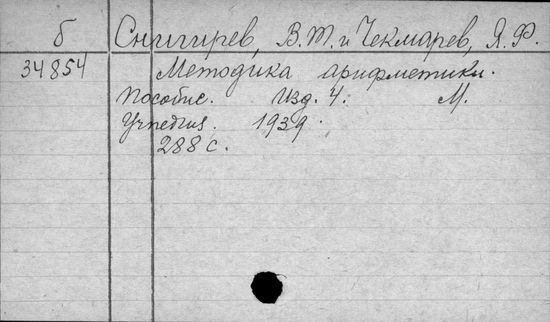 б Снигирев, В.Т. и Чекмарев, Я.Ф.
34854 Методика арифметики.
Пособие. Изд. 4. М.
Учпедгиз. 1939.
288 с.